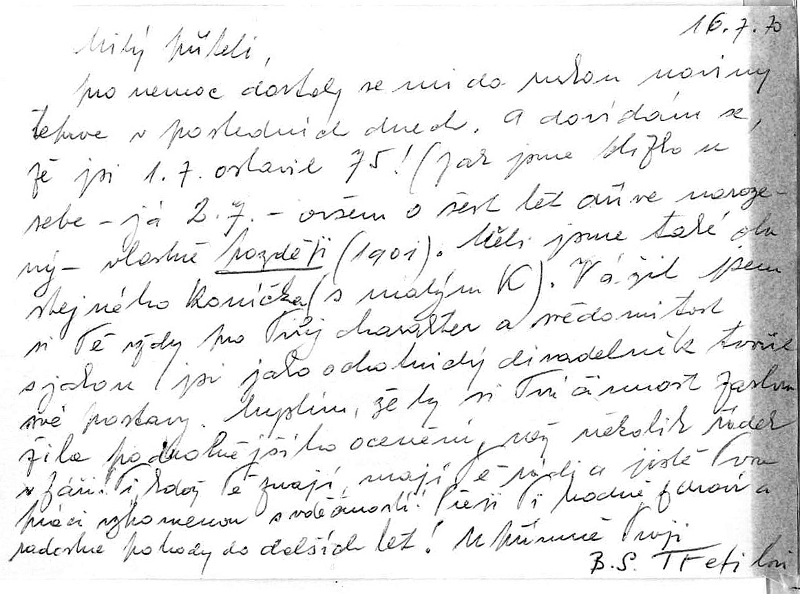 16.7.70
Milý příteli,
pro nemoc dostaly se mi do rukou noviny
teprve v posledních dnech. A dovídám se,
že jsi 1.7. oslavil 75! (Jak jsme blízko u
sebe – já 2.7. – ovšem o šest let dříve naroze-
ný – vlastně později (1901). Měli jsme také oba
stejného koníčka (s malým K). Vážil jsem
si Tě vždy pro Tvůj charakter a svědomitost
s jakou jsi jako ochotnický divadelník tvořil
své postavy. Myslím, že by si Tvá činnost zaslou
žila podrobnějšího ocenění, než několik řádek
v Záři. Ti kdož Tě znají, mají Tě rádi a jistě Tvou
práci vzpomenou s vděčností! Přeji Ti hodně zdraví a
radostné pohody do dalších let! Upřímně Tvůj
B.S.